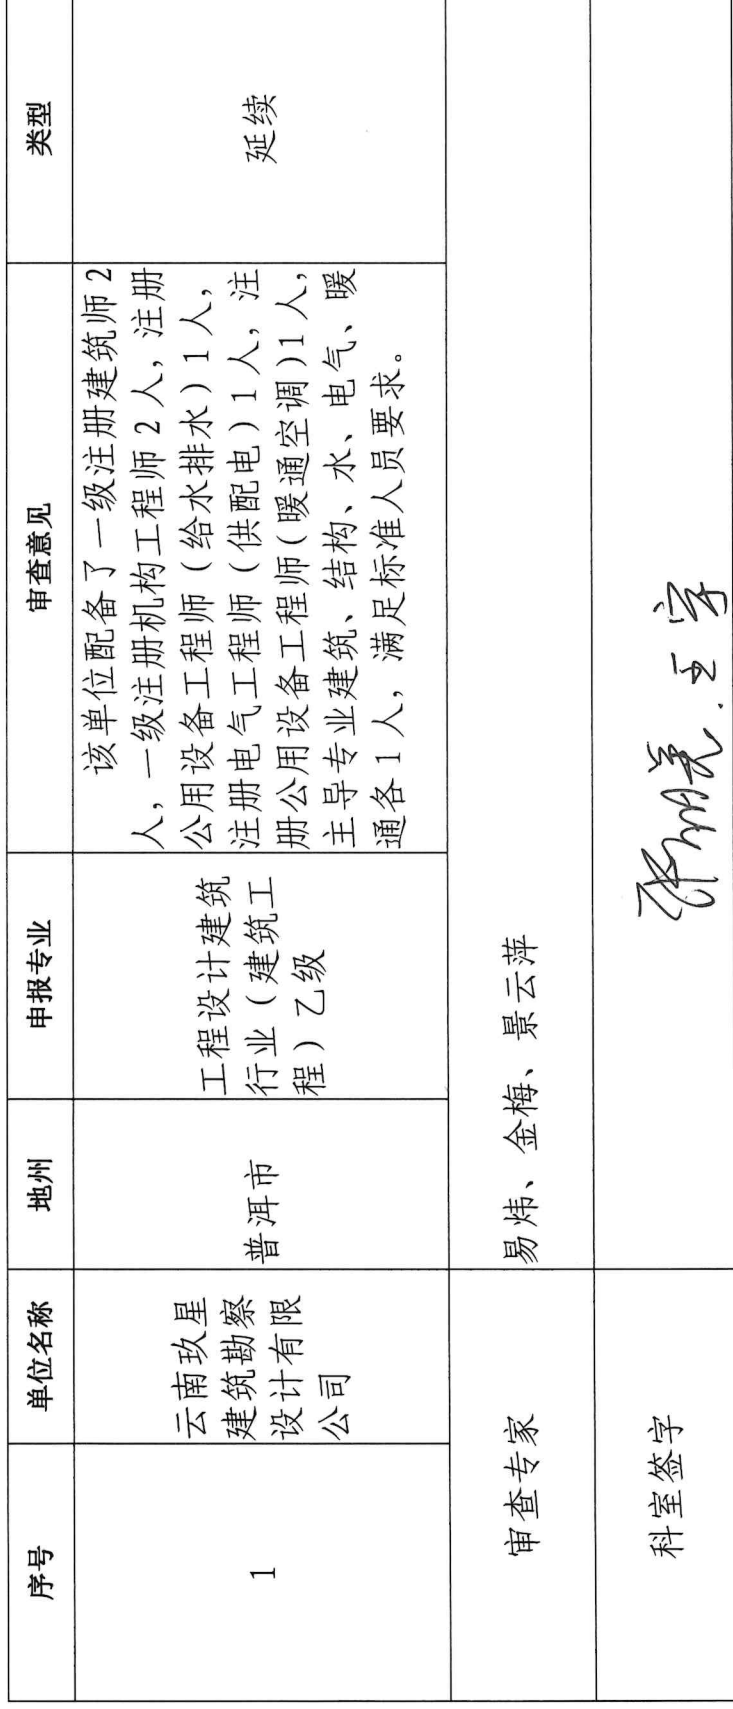 序号
单位名称
地州
申报专业
审查意见
类型
1
云南玖星
建筑勘察
设计有限
公司
普洱市
工程设计建筑
行业（建筑工
程）乙级
该单位配备了一级注册建筑师2
人，一级注册机构工程师2人，注册
公用设备工程师（给水排水）1人，
注册电气工程师（供配电）1人，注
册公用设备工程师（暖通空调）1人，
主导专业建筑、结构、水、电气、暖
通各1人，满足标准人员要求。
延续
审查专家
易炜、金梅、景云萍
科室签字